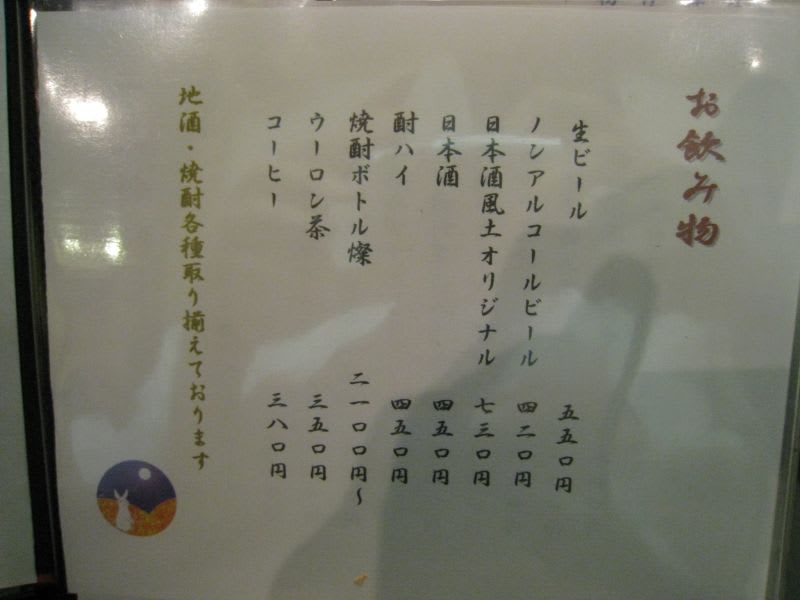 お飲み物
生ビール 五五〇円
ノンアルコールビール 四二〇円
日本酒風土オリジナル 七三〇円
日本酒 四五〇円
酎ハイ 四五〇円
焼酎ボトル燦 二一〇〇円～
ウーロン茶 三五〇円
コーヒー 三八〇円
地酒・焼酎各種取り揃えております